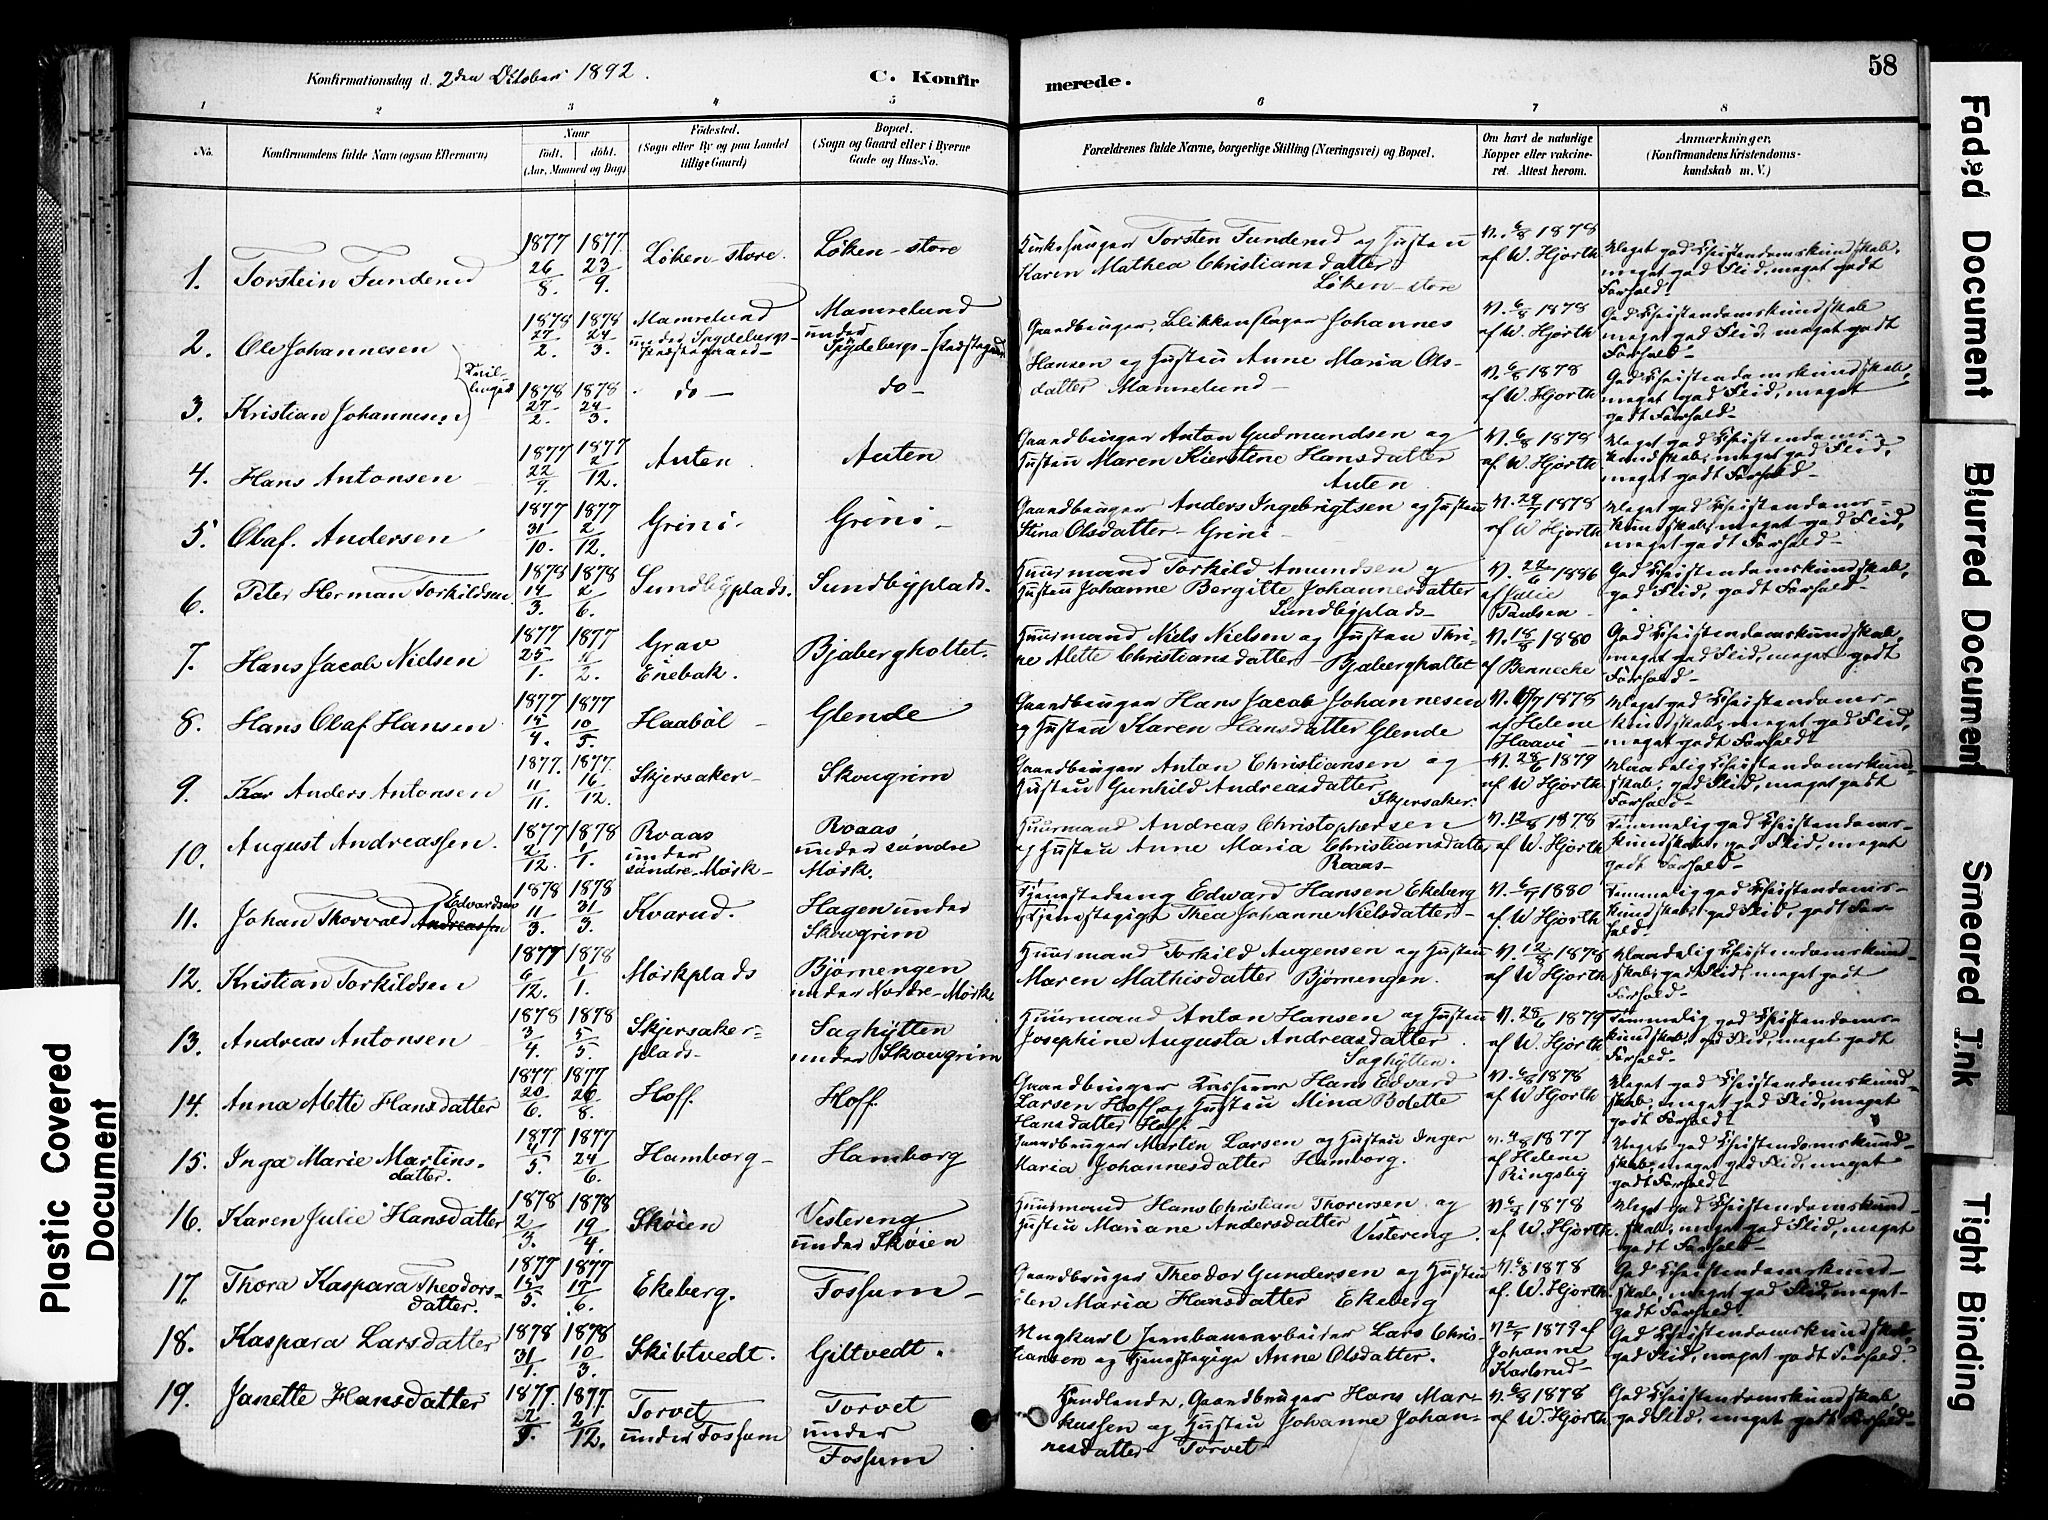 Konfirmationsdag d. 2den Oktober 1892.
C. Konfirmerede.
58
1 2 3 4 5 6 7 8
No.
Konfirmandens fulde Navn (ogsaa Efternavn)
Naar
födt. döbt.
(Aar, Maaned og Dag)
Födested.
(Sogn eller By og paa Landet
tillige Gaard)
Bopæl.
(Sogn og Gaard eller i Byerne
Gade og Hus-No.
Forældrenes fulde Navne, borgerlige Stilling (Næringsvei) og Bopæl.
Om havt de naturlige
Kopper eller vakcine-
ret. Attest herom.
Anmærkninger.
(Konfirmandens Kristendoms-
kundskab m. V.)
1. Torstein Fundenud 1877 26/8. 1877. 23/9. Løken-store. Løken-store Kirkesanger Torsten Fundenud og Hustru
Karen Mathea Christiansdatter
Løken-store
V. 6/8 1878
af W. Hjorth
Meget god Christendomskundskab,
meget god Flid, meget godt
Forhold-
2. Ole Johannesen 1878 27/2. 1878 24/3. Mamrelund
under Spydebergs-
Præstegaard-
Mamrelund
under
Spydebergs-Præstegaard
Gaardbruger, Blikkenslager Johannes
Hansen og Hustru Anne Maria Ols-
datter Mamrelund-
V. 6/8 1878
af W. Hjorth
God Christendomskundskab
meget god Flid, meget godt
Forhold-
Tvil-
linger
3. Kristian Johannesen 1878 27/2. 1878 24/3. do- do-
V. 6/8 1878
af W. Hjorth
God Christendomskundskab,
meget god Flid, meget
godt Forhold-
4. Hans Antonsen 1877 22/9. 1877 2/12. Auten. Auten Gaardbruger Anton Gudmundsen og
Hustru Maren Kierstine Hansdatter
Auten.
V. 6/8 1878
af. W. Hjorth
Meget god Christendoms-
kundskab, meget god Flid,
meget godt Forhold-
5. Olaf. Andersen 1877 31/10. 1877 2/12. Grini- Grini- Gaardbruger Anders Ingebrigtsen og Hustru
Stina Olsdatter- Grini-
V. 29/7 1878
af W. Hjorth
Meget god Christendoms-
kundskab, meget god Flid,
meget godt Forhold-
6. Peter Herman Torkildsen 1878 14/3. 1878 2/6. Sundbyplads. Sundbyplads. Huusmand Torkild Amundsen og
Hustru Johanne Bergitte Johannesdatter
Sundbyplads-
V. 22/6 1886
af Julie
Paulsen-
God Christendomskundskab,
god Flid, godt Forhold-
7. Hans Jacob Nielsen 1877 25/1. 1877 11/2. Grav
Enebak.
Bjaberghollet. Huusmand Niels Nielsen og Hustru Thri-
ne Alette Christiansdatter- Bjaberghollet
V. 18/8 1880
af Bennecke
God Christendomskundskab,
meget god Flid, meget godt
Forhold-
8. Hans Olaf Hansen 1877 15/4. 1877 10/5. Haabøl- Glende Gaardbruger Hans Jacob Johannesen
og Hustru Karen Hansdatter Glende
1878
af Helene
Haavi-
Meget god Christendoms-
kundskab, meget god Flid,
meget godt Forhold
9. Anders Antonsen 1877. 11/11. 1877. 16/12. Skjersaker- Skougrim Gaardbruger Anton Christiansen og
Hustru Gunhild Andreasdatter
Skjersaker.
V. 28/6 1879
af W. Hjorth
Maadelig Christendomskund-
skab, god Flid, meget godt
Forhold-
10. August Andreassen. 1877 2/12. 1878 1/1. Roaas
under
søndre-Mørk-
Roaas
under søndre
Mørk.
Huusmand Andreas Christophersen
og Hustru Anne Maria Christiansdatter
Roaas-
V. 12/8 1878
af W. Hjorth
Temmelig god Christendoms-
kundskab, god Flid, meget
godt Forhold-
11. Johan Thorvald Andreassen Edvardsen 1878 11/3. 1878 31/3. Kvarud. Hagen under
Skougrim
Tjenestedreng Edward Hansen Ekeberg
Tjenestepige Thea Johanne Nielsdatter-
1880
af. W. Hjorth
Temmelig god Christendoms-
kundskab, god Flid, godt For-
hold-
12. Kristian Torkildsen 1877 6/12. 1878 1/1. Mørkplads Bjørnengen
under Nordre-Mørk
Huusmand Torkild Augensen og Hustru
Maren Mathisdatter Bjørnengen.
V. 12/8 1878
af W. Hjorth
Maadelig Christendomskund-
skab, god Flid, meget godt
Forhold-
13. Andreas Antonsen 1878 3/4. 1878 5/5. Skjersaker-
plads-
Saghytten
under Skougrim
Huusmand Anton Hansen og Hustru
Josephine Augusta Andreasdatter
Saghytten.
V. 28/6 1879
af W. Hjorth
Temmelig god Christendoms-
kundskab, god Flid, meget godt
Forhold-
14. Anna Alette Hansdatter 1877. 20/6. 1877. 26/8. Hoff. Hoff. Gaardbruger Hans Edvard
Larsen Hoff og Hustru Mina Bolette
Hansdatter Hoff-
V. 6/8 1878
af W. Hjorth
Meget god Christendomskund-
skab, meget god Flid, meget
godt Forhold-
15. Inga Marie Martins-
datter.
1877 4/5. 1877 24/6. Hamborg- Hamborg Gaardbruger Martin Larsen og Hustru Inger
Maria Johannesdatter Hamborg.
1877
af Helene
Ringsby
Meget god Christendomskund-
skab, meget god Flid, meget
godt Forhold-
16. Karen Julie Hansdatter 1878 2/3. 1878 19/4. Skøien Vestereng
under Skøien
Huusmand Hans Christian Thoresen og
Hustru Mariane Andersdatter
Vestereng.
V. 6/8 1878
af W. Hjorth
Meget god Christendomskund-
skab, meget god Flid, meget
godt Forhold-
17. Thora Kaspara Theodors-
datter.
1877 15/5. 1877 17/6. Ekeberg. Fossum- Gaardbruger Theodor Gundersen og Hustru
Elen Maria Hansdatter Ekeberg
V. 6/8 1878
af. W. Hjorth
God Christendomskund-
skab, meget god Flid, meget
godt Forhold-
18. Kaspara Larsdatter 1878 31/1. 1878 10/3. Skibtvedt. Giltvedt. Ungkarl Jernbanearbeider Lars Chris-
tiansen og Tjenestepige Anne Olsdatter.
1879 af
Johanne
Karlsrud-
God Christendomskundskab,
god Flid, meget godt Forhold
19. Janette Hansdatter 1877. 1877. 2/12. Torvet
under Fossum
Torvet
under
Fossum
Handlende, Gaardbruger Hans Mar-
kussen og Hustru Johanne Johan-
nesdatter- Torvet-
V. 6/8 1878
af W. Hjorth
God Christendomskundskab,
god Flid, meget godt Forhold-
Plastic Covered
Document
Faded Document
Blurred Document
Smeared Ink
Tight Binding